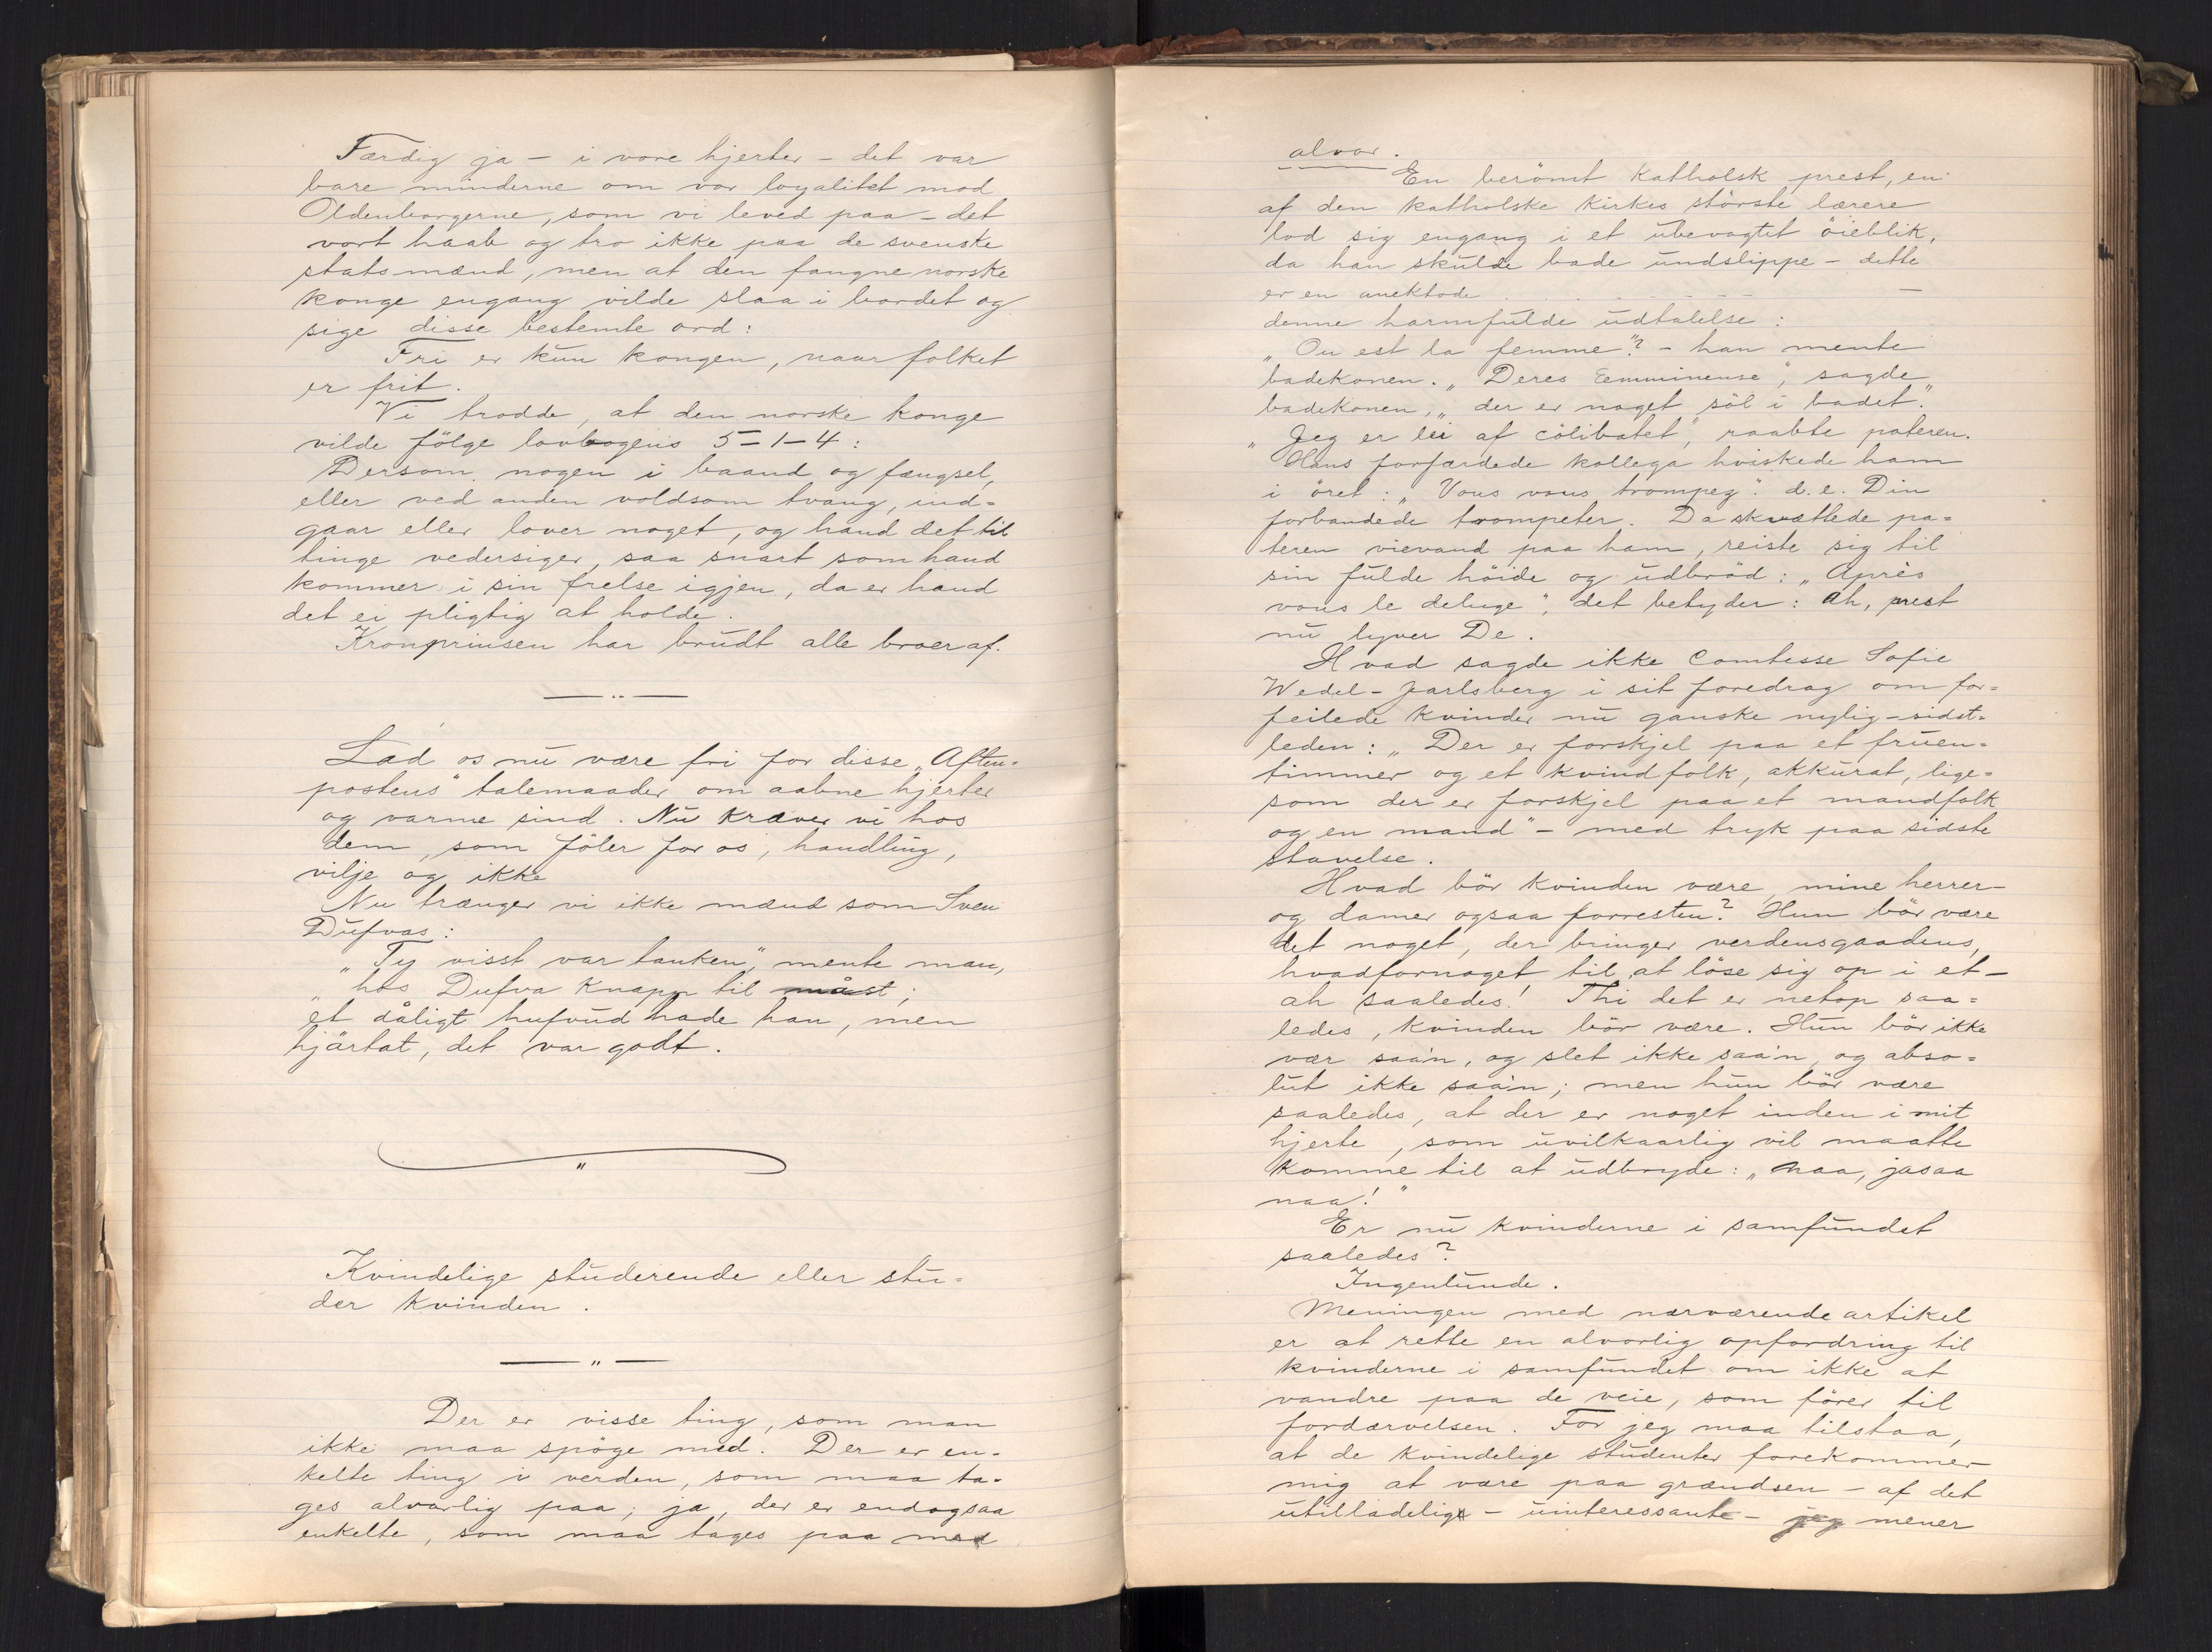 Færdig ja - i vore hjerter - det var
bare minderne om vor loyalitet mod
Oldenborgerne, som vi leved paa - det
vort haab og tro ikke paa de svenske
statsmænd, men at den fangne norske
konge engang vilde slaa i bordet og
sige disse bestemte ord:
Fri er kun kongen, naar folket
er frit.
Vi trodde, at den norske konge
vilde fölge lovbogens 5-1-4:
Dersom nogen i baand og fængsel,
eller ved anden voldsom tvang, ind=
gaar eller lover noget, og hand det til
tinge vedersiger, saa snart som hand
kommer i sin frelse igjen, da er hand
det ei pligtig at holde.
Kronprinsen har brudt alle broer af.
Lad os nu være fri for disse „Aften=
postens" talemaader om aabne hjerter
og varme sind. Nu kræver vi hos
dem, som föler for os, handling,
vilje og ikke
Nu trænger vi ikke mænd som Sven
Dufvas:
„Ty visst var tanken", mente man,
„hos Dufva knapp til måst;
et dåligt hufvud hade han, men
hjärtat, det var godt.
Kvindelige studerende eller stu=
der kvinden.
Der er visse ting, som man
ikke maa spöge med. Der er en=
kelte ting i verden, som maa ta=
ges alvorlig paa; ja, der er endogsaa
enkelte, som maa tages paa med
alvor.
En berömt katholsk prest, en
af den katholske kirkes störste lærere
lod sig engang i et ubevogtet öieblik,
da han skulde bade undslippe - dette
er en anektode . . . . . . . -
denne harmfulde udtalelse:
„Ou est la femme"? - han mente
badekonen. „Deres Eemminense", sagde
badekonen, „der er noget söl i badet."
„Jeg er lei af cölibatet," raabte pateren.
Hans forfærdede kollega hviskede ham
i öret: „Vous vous trompez": d. e. Din
forbandede trompeter. Da skvættede pa=
teren vievand paa ham, reiste sig til
sin fulde höide og udbröd: „Après
vous le deluge", det betyder: Ah, prest
nu lyver De.
Hvad sagde ikke Comtesse Sofie
Wedel-Jarlsberg i sit foredrag om for=
feilede kvinder nu ganske nylig - sidst=
leden: „Der er forskjel paa et fruen=
timmer og et kvindfolk, akkurat, lige=
som der er forskjel paa et mandfolk
og en mand" - med tryk paa sidste
stavelse.
Hvad bör kvinden være, mine herrer -
og damer ogsaa forresten? Hun bör være
det noget, der bringer verdensgaadens,
hvadfornoget til at löse sig op i et -
ah saaledes! Thi det er netop saa=
ledes, kvinden bör være. Hun bör ikke
vær saa'n, og slet ikke saa'n, og abso=
lut ikke saa'n; men hun bör være
saaledes, at der er noget inden i mit
hjerte, som uvilkaarlig vil maatte
komme til at udbryde: „naa, jasaa
naa!"
Er nu kvinderne i samfundet
saaledes?
Ingenlunde.
Meningen med nærværende artikel
er at rette en alvorlig opfordring til
kvinderne i samfundet om ikke at
vandre paa de veie, som förer til
fordærvelsen. For jeg maa tilstaa,
at de kvindelige studenter forekommer
mig at være paa grændsen - af det
utilladelige - uinteressante - jeg mener